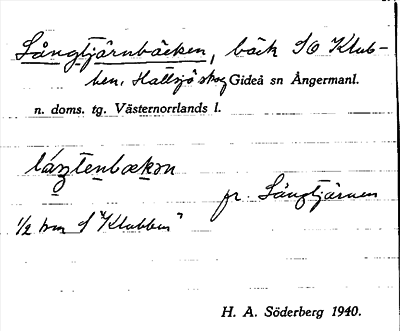 Långtjärnbäcken, bäck SO Klub-
ben, Hallsjö skog Gideå sn Ångermanl.
n. doms. tg. Västernorrlands l.
fr. Långtjärnen
1/2 km S "Klubben"
H. A. Söderberg 1940.